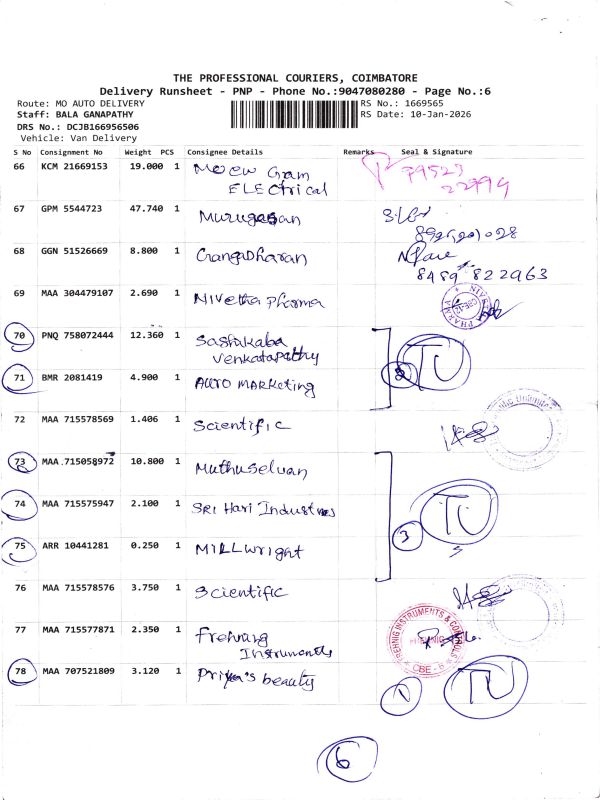 THE PROFESSIONAL COURIERS, COIMBATORE
Delivery Runsheet - PNP - Phone No.:9047080280 - Page No.:6
Route: MO AUTO DELIVERY RS No.: 1669565
Staff: BALA GANAPATHY RS Date: 10-Jan-2026
DRS No.: DCJB166956506
Vehicle: Van Delivery
S No Consignment No Weight PCS Consignee Details Remarks Seal & Signature
66 KCM 21669153 19.000 1 Moew Gram
ELEctrical
79523
22994
67 GPM 5544723 47.740 1 Murugesan
68 GGN 51526669 8.800 1 Gangadharan
8489 822963
69 MAA 304479107 2.690 1 Nivetha Pharma
PHARMA
70 PNQ 758072444 12.360 1 Sashikaba
Venkatapathy
TU
71 BMR 2081419 4.900 1 AUTO MARKETING
72 MAA 715578569 1.406 1 Scientific
73 MAA 715058972 10.800 1 Muthuselvan
74 MAA 715575947 2.100 1 SRI Hari Industries
TU
3
75 ARR 10441281 0.250 1 MILLWright
76 MAA 715578576 3.750 1 Scientific
77 MAA 715577871 2.350 1 Frehnig
Instruments
FREHNIG INSTRUMENTS & CONTROLS
CBE - 6
78 MAA 707521809 3.120 1 Priya's beauty
1 TU
6